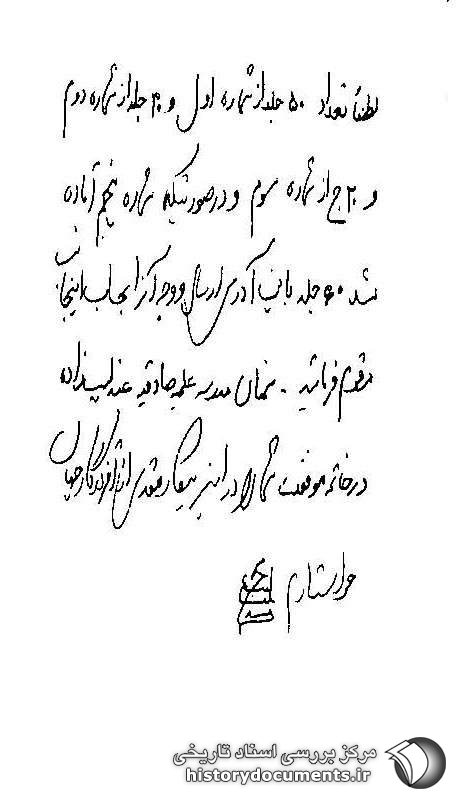 لطفاً تعداد ۵۰ جلد از شماره اول و ۳۰ جلد از شماره دوم
و ۲۰ ج از شماره سوم و در صورتیکه شماره پنجم آماده
شد ۶۰ جلد باین آدرس ارسال و وجه آنرا بحساب اینجانب
مرقوم فرمائید . سمنان مدرسه علمیه صادقیه عندلیب زاده
در خاتمه موفقیت شما را در این پیکار مقدس از آفریدگار جهان
خواستارم
مرکز بررسی اسناد تاریخی
historydocuments.ir